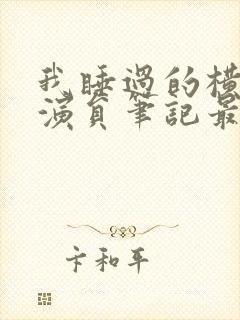 我睡過的橫
演員筆記最
卡和平